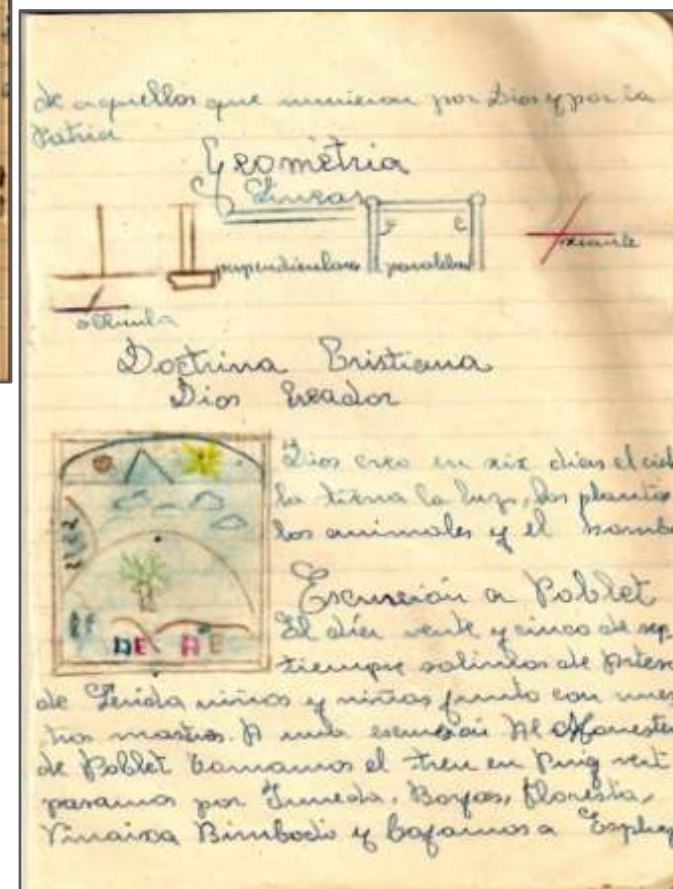 de aquellos que murieron por Dios y por la
Patria
Geometria
Lineas
perpendiculares paralelas
secante
oblicula
Doctrina Cristiana
Dios Creador
Dios creo en six dias el ciel
la tierra la luz, las plantas
los animales y el hombr
DE
Escursión a Poblet
El dia vente y cinco de sep
tiempre salimos de Artesa
de Lerida niños y niñas junto con nues
tros mastros. A una escursión Al Monester
de Poblet tomamos el tren en Puig vert
pasamos por Juneda, Borjas, Floresta,
Vinaixa Bimbodi y bajamos a Esplug